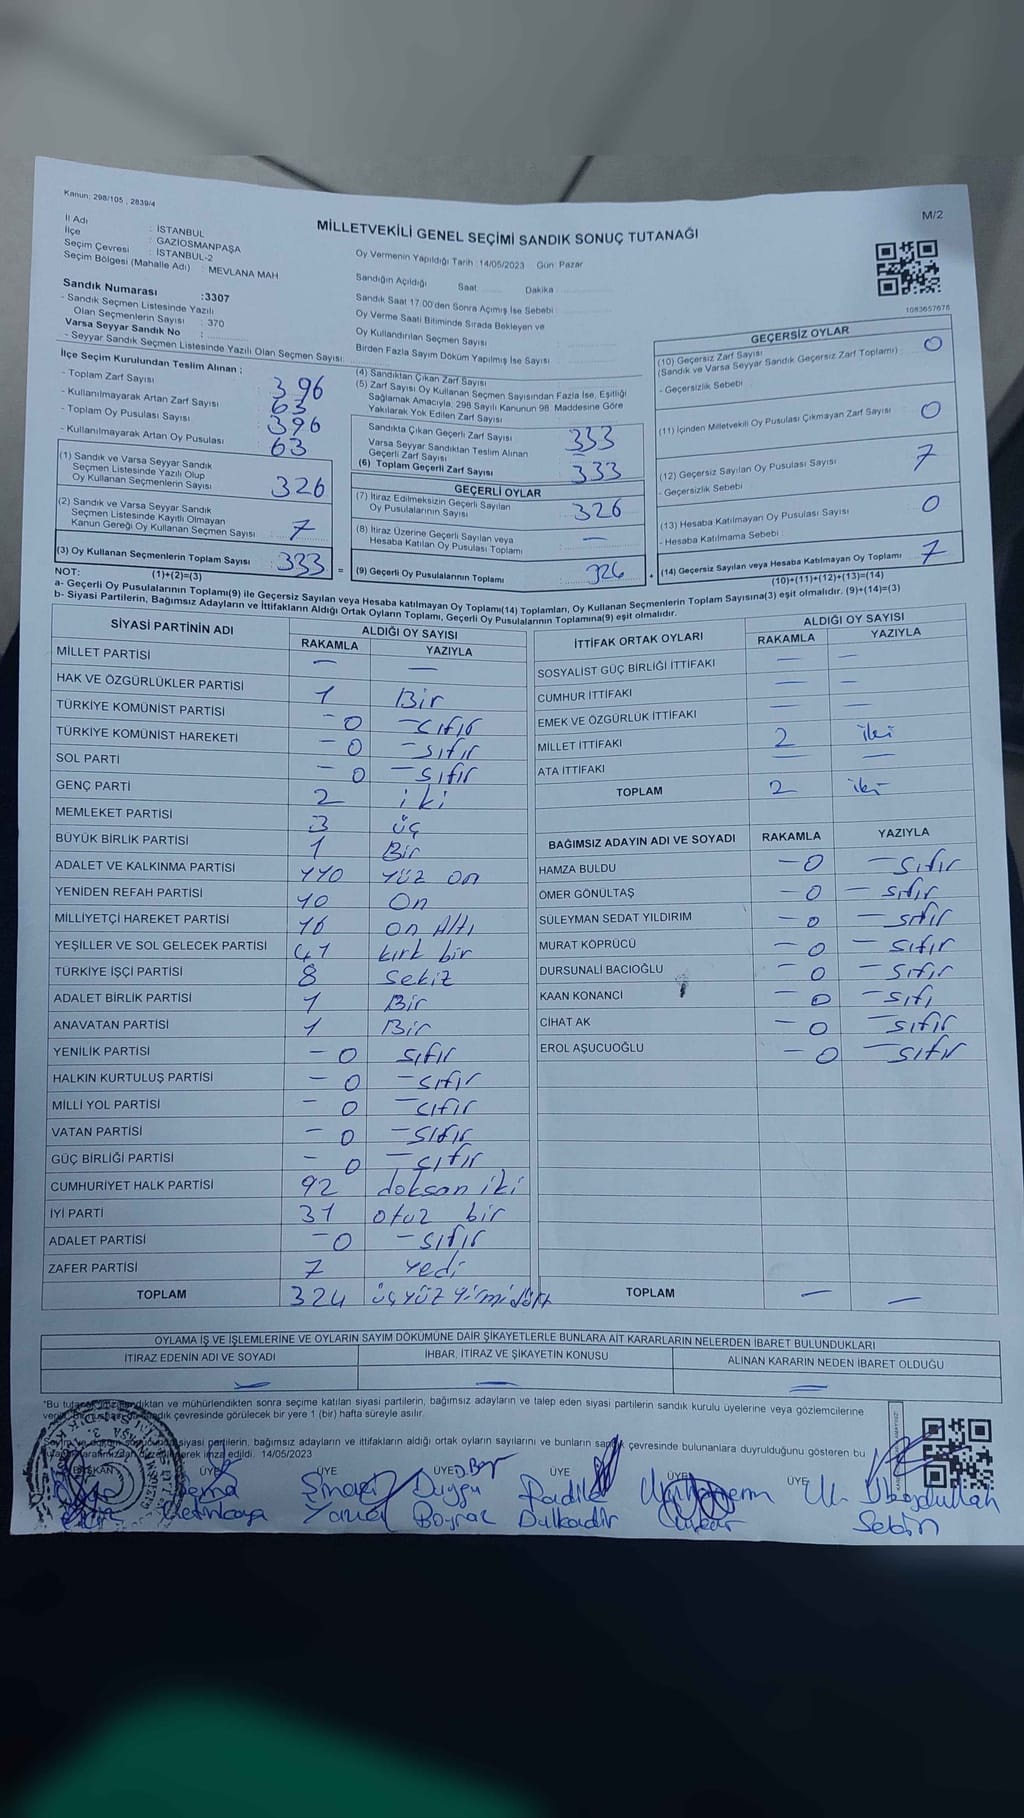 Kanun: 298/105 , 2839/4
M/2
MİLLETVEKİLİ GENEL SEÇİMİ SANDIK SONUÇ TUTANAĞI
İl Adı : İSTANBUL
İlçe : GAZİOSMANPAŞA
Seçim Çevresi : İSTANBUL-2
Seçim Bölgesi (Mahalle Adı) : MEVLANA MAH
Oy Vermenin Yapıldığı Tarih :14/05/2023 Gün: Pazar
Sandığın Açıldığı Saat Dakika
Sandık Saat 17.00'den Sonra Açılmış İse Sebebi
Oy Verme Saati Bitiminde Sırada Bekleyen ve
Oy Kullandırılan Seçmen Sayısı
Birden Fazla Sayım Döküm Yapılmış İse Sayısı
1083657676
Sandık Numarası :3307
- Sandık Seçmen Listesinde Yazılı
Olan Seçmenlerin Sayısı : 370
Varsa Seyyar Sandık No :
- Seyyar Sandık Seçmen Listesinde Yazılı Olan Seçmen Sayısı
İlçe Seçim Kurulundan Teslim Alınan :
- Toplam Zarf Sayısı : 396
- Kullanılmayarak Artan Zarf Sayısı : 63
- Toplam Oy Pusulası Sayısı : 396
- Kullanılmayarak Artan Oy Pusulası : 63
(1) Sandık ve Varsa Seyyar Sandık
Seçmen Listesinde Yazılı Olup
Oy Kullanan Seçmenlerin Sayısı 326
(2) Sandık ve Varsa Seyyar Sandık
Seçmen Listesinde Kayıtlı Olmayan
Kanun Gereği Oy Kullanan Seçmen Sayısı 7
(3) Oy Kullanan Seçmenlerin Toplam Sayısı : 333 =
(1)+(2)=(3)
(4) Sandıktan Çıkan Zarf Sayısı
(5) Zarf Sayısı Oy Kullanan Seçmen Sayısından Fazla İse, Eşitliği
Sağlamak Amacıyla, 298 Sayılı Kanunun 98. Maddesine Göre
Yakılarak Yok Edilen Zarf Sayısı
Sandıkta Çıkan Geçerli Zarf Sayısı 333
Varsa Seyyar Sandıktan Teslim Alınan
Geçerli Zarf Sayısı
(6) Toplam Geçerli Zarf Sayısı 333
GEÇERLİ OYLAR
(7) İtiraz Edilmeksizin Geçerli Sayılan
Oy Pusulalarının Sayısı 326
(8) İtiraz Üzerine Geçerli Sayılan veya
Hesaba Katılan Oy Pusulası Toplamı —
(9) Geçerli Oy Pusulalarının Toplamı : 326 +
GEÇERSİZ OYLAR
(10) Geçersiz Zarf Sayısı
(Sandık ve Varsa Seyyar Sandık Geçersiz Zarf Toplamı) : 0
- Geçersizlik Sebebi
(11) İçinden Milletvekili Oy Pusulası Çıkmayan Zarf Sayısı 0
(12) Geçersiz Sayılan Oy Pusulası Sayısı 7
- Geçersizlik Sebebi
(13) Hesaba Katılmayan Oy Pusulası Sayısı 0
- Hesaba Katılmama Sebebi :
(14) Geçersiz Sayılan veya Hesaba Katılmayan Oy Toplamı 7
(10)+(11)+(12)+(13)=(14)
NOT:
a- Geçerli Oy Pusulalarının Toplamı(9) ile Geçersiz Sayılan veya Hesaba katılmayan Oy Toplamı(14) Toplamları, Oy Kullanan Seçmenlerin Toplam Sayısına(3) eşit olmalıdır. (9)+(14)=(3)
b- Siyasi Partilerin, Bağımsız Adayların ve İttifakların Aldığı Ortak Oyların Toplamı, Geçerli Oy Pusulalarının Toplamına(9) eşit olmalıdır.
SİYASİ PARTİNİN ADI ALDIĞI OY SAYISI
RAKAMLA YAZIYLA
MİLLET PARTİSİ — —
HAK VE ÖZGÜRLÜKLER PARTİSİ 1 Bir
TÜRKİYE KOMÜNİST PARTİSİ - 0 - sıfır
TÜRKİYE KOMÜNİST HAREKETİ - 0 - sıfır
SOL PARTİ - 0 - sıfır
GENÇ PARTİ 2 iki
MEMLEKET PARTİSİ 3 üç
BÜYÜK BİRLİK PARTİSİ 1 Bir
ADALET VE KALKINMA PARTİSİ 110 Yüz On
YENİDEN REFAH PARTİSİ 10 On
MİLLİYETÇİ HAREKET PARTİSİ 16 On Altı
YEŞİLLER VE SOL GELECEK PARTİSİ 41 kırk bir
TÜRKİYE İŞÇİ PARTİSİ 8 Sekiz
ADALET BİRLİK PARTİSİ 1 Bir
ANAVATAN PARTİSİ 1 Bir
YENİLİK PARTİSİ - 0 sıfır
HALKIN KURTULUŞ PARTİSİ - 0 - sıfır
MİLLİ YOL PARTİSİ - 0 - sıfır
VATAN PARTİSİ - 0 - sıfır
GÜÇ BİRLİĞİ PARTİSİ - 0 - sıfır
CUMHURİYET HALK PARTİSİ 92 doksan iki
İYİ PARTİ 31 otuz bir
ADALET PARTİSİ - 0 - sıfır
ZAFER PARTİSİ 7 Yedi
TOPLAM 324 üçyüz yirmidört
İTTİFAK ORTAK OYLARI ALDIĞI OY SAYISI
RAKAMLA YAZIYLA
SOSYALİST GÜÇ BİRLİĞİ İTTİFAKI — —
CUMHUR İTTİFAKI — —
EMEK VE ÖZGÜRLÜK İTTİFAKI — —
MİLLET İTTİFAKI 2 iki
ATA İTTİFAKI — —
TOPLAM 2 iki
BAĞIMSIZ ADAYIN ADI VE SOYADI RAKAMLA YAZIYLA
HAMZA BULDU - 0 - sıfır
ÖMER GÖNÜLTAŞ - 0 - sıfır
SÜLEYMAN SEDAT YILDIRIM - 0 - sıfır
MURAT KÖPRÜCÜ - 0 - sıfır
DURSUNALİ BACIOĞLU - 0 - sıfır
KAAN KONANCİ - 0 - sıfı
CİHAT AK - 0 - sıfır
EROL AŞUCUOĞLU - 0 - sıfır
TOPLAM — —
OYLAMA İŞ VE İŞLEMLERİNE VE OYLARIN SAYIM DÖKÜMÜNE DAİR ŞİKAYETLERLE BUNLARA AİT KARARLARIN NELERDEN İBARET BULUNDUKLARI
İTİRAZ EDENİN ADI VE SOYADI İHBAR, İTİRAZ VE ŞİKAYETİN KONUSU ALINAN KARARIN NEDEN İBARET OLDUĞU
— — —
*Bu tutanak imzalandıktan ve mühürlendikten sonra seçime katılan siyasi partilerin, bağımsız adayların ve talep eden siyasi partilerin sandık kurulu üyelerine veya gözlemcilerine
çevresinde görülecek bir yere 1 (bir) hafta süreyle asılır.
siyasi partilerin, bağımsız adayların ve ittifakların aldığı ortak oyların sayılarını ve bunların sandık çevresinde bulunanlara duyrulduğunu gösteren bu
imza edildi. 14/05/2023
BAŞKAN ÜYE ÜYE ÜYE ÜYE ÜYE ÜYE
D.Bay
Sema Şinasi Duygu Fadile Ubeydullah
Çetinkaya Yavuz Bayrac Dulkadir Sebin